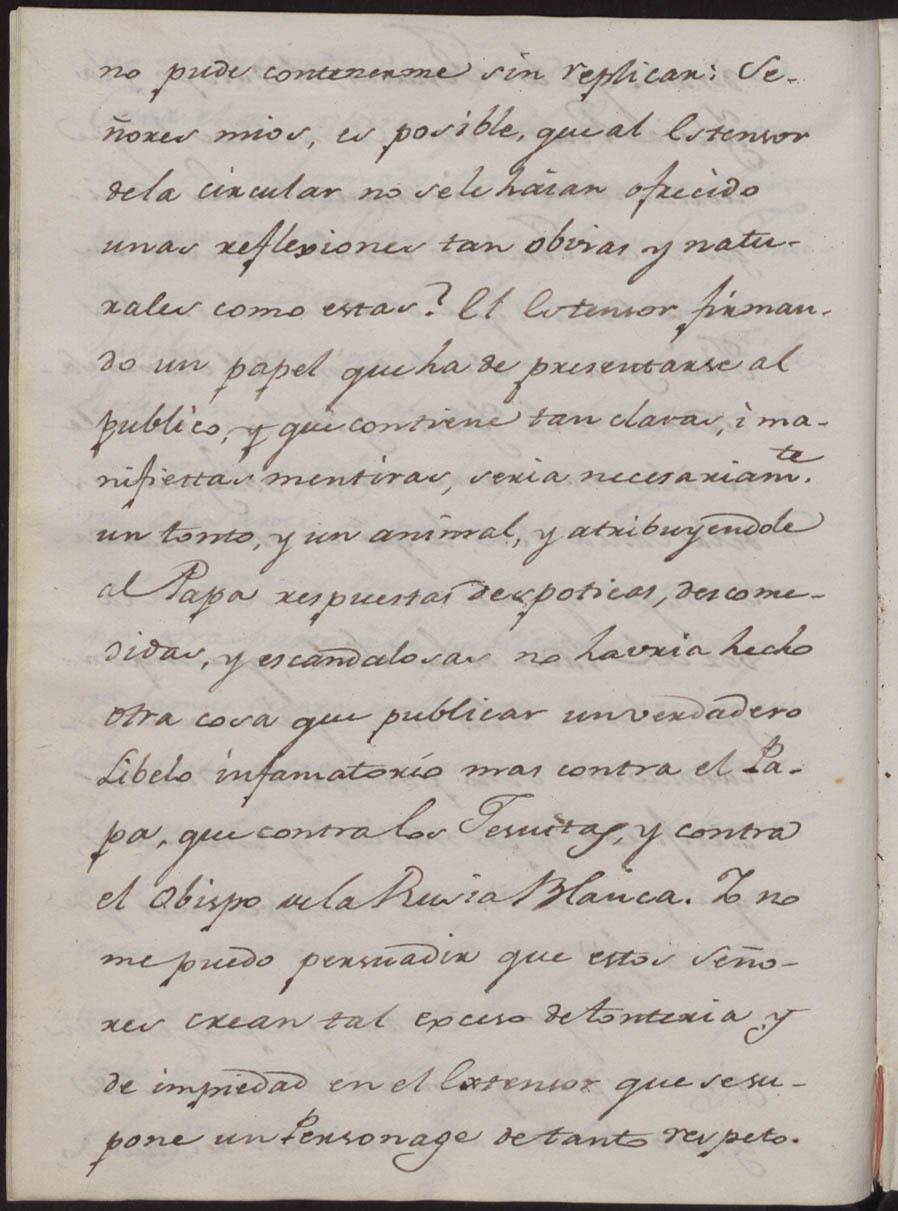 no pude contenerme sin replicar: Se-
ñores mios, es posible, que al Estensor
dela circular no sele háian ofrecido
unas reflexiones tan obvias y natu-
rales como estas? El Estensor firman-
do un papel que ha de presentarse al
publico, y que contiene tan claras, i ma-
nifiestas mentiras, seria necesariam.te
un tonto, y un animal, y atribuyendole
al Papa respuestas despoticas, descome-
didas, y escandalosas no havria hecho
otra cosa que publicar un verdadero
Libelo infamatorio mas contra el Pa-
pa, que contra los Jesuitas, y contra
el Obispo dela Rusia Blanca. Yo no
me puedo persuadir que estos Seño-
res crean tal exceso de tonteria y
de impiedad en el Extensor que sesu-
pone un Personage de tanto respeto.